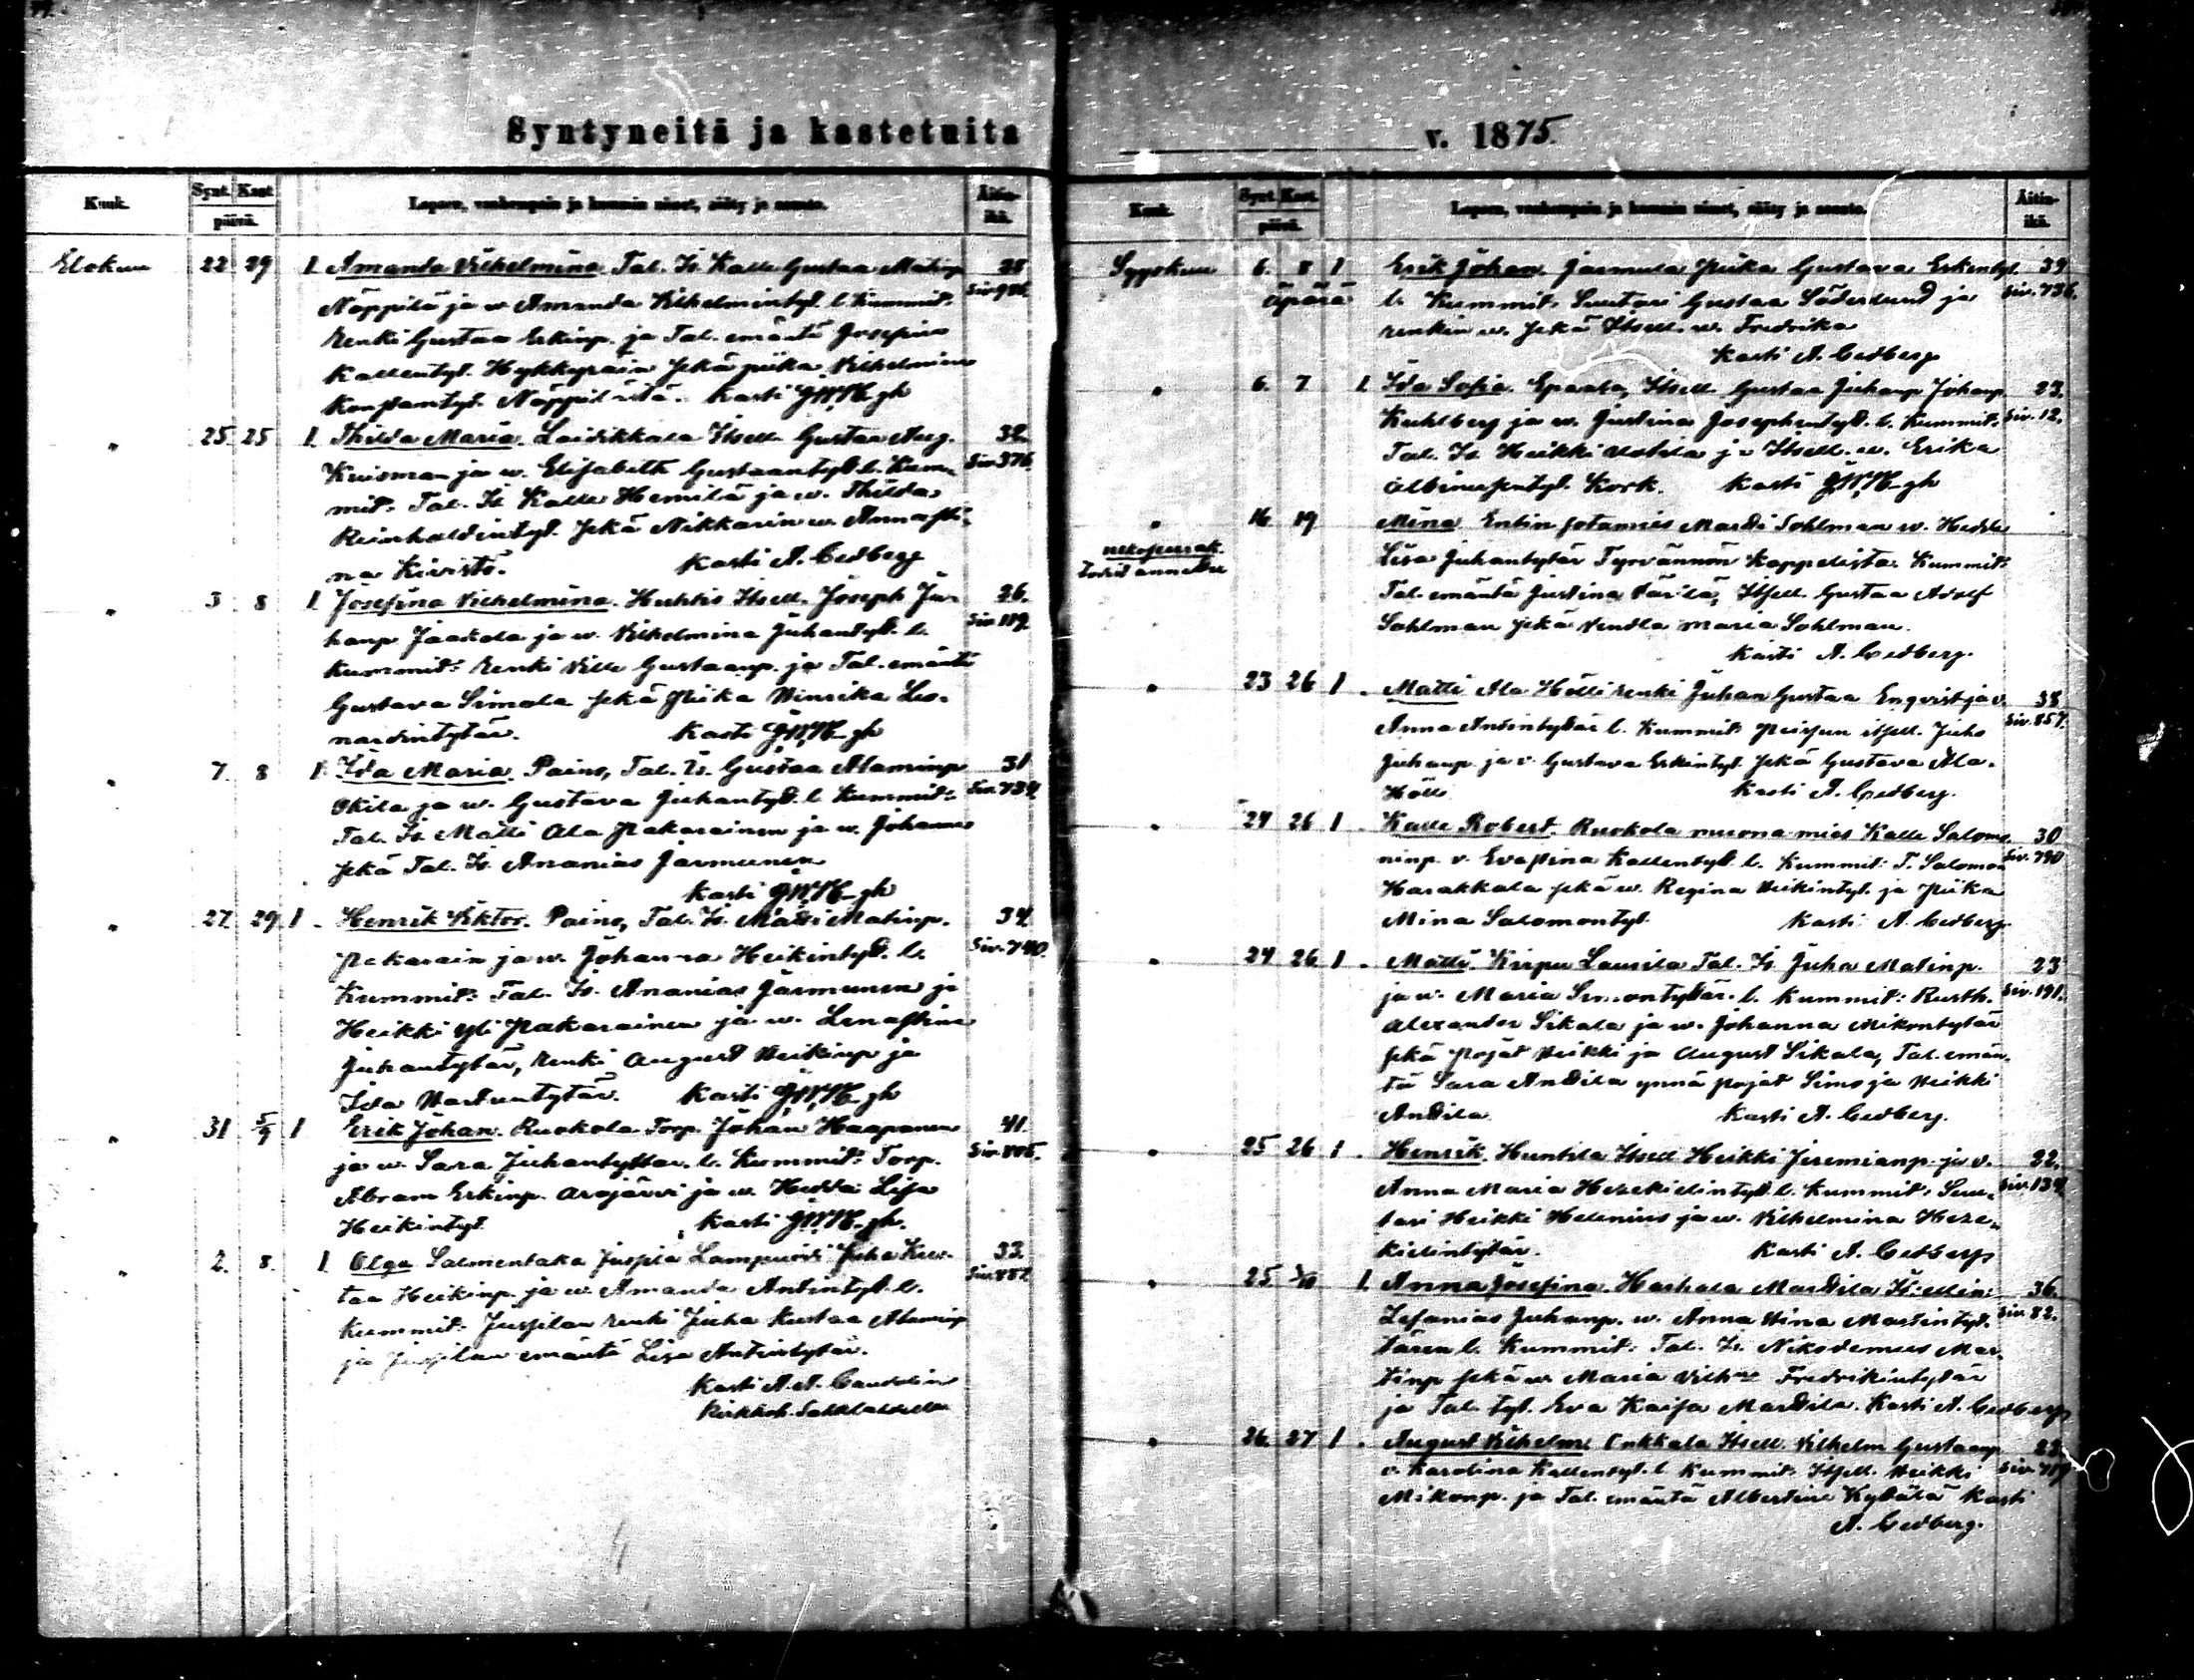 Syntyneitä ja kastetuita
Kuuk. Synt. Kast. päivä. Lapsen, vanhempain ja kummin nimet, sääty ja asunto. Äitin ikä.
Elokuu 22 29 1 Amanda Vilhelmina Tal. Is. Kalle Gustaa Matinp. 28
Näppilä ja w. Amanda Vilhelmintyt. l. Kummit:
Renki Gustaa Erkinp. ja Tal. emäntä Josefina
Kallentyt. Hykkyrään sekä piika Vilhelmina
Konstantyt. Näppilästä. Kasti
" 25 25 1 Thilda Maria. Laidikkala Itsell. Gustaa Aug. 32.
Kuisman ja w. Elisabeth Gustaantyt. l. Kum- Siv. 376.
mit: Tal. Is. Kalle Hemilä ja w. Thilda
Reinholdintyt. sekä Nikkarin w. Annasti-
na Kivistö. Kasti A. Cedberg
" 3 8 1 Josefina Vilhelmina. Huhtis Itsell. Joseph Ju- 26.
hanp. Jaakola ja w. Vilhelmina Juhantyt. l. Siv. 119.
Kummit: Renki Ville Gustaanp. ja Tal. emäntä
Gustava Simola sekä Piika Henrika Leo-
nardintytär. Kasti
" 7 8 1 Ida Maria. Paino, Tal. Is. Gustaa Ataminp. 31
Okila ja w. Gustava Juhantyt. l. Kummit: Siv. 739.
Tal. Is. Matti Ala Pakarainen ja w. Johanna
sekä Tal. Is. Ananias Jarmunen
Kasti
" 27. 29. 1 Henrik Viktor. Paino, Tal. Is. Matti Matinp. 34.
Pakarain ja w. Johanna Heikintyt. l. Siv. 740.
Kummit: Tal. Is. Ananias Jarmunen ja
Heikki Yli Pakarainen ja w. Lenastina
Juhantytär, Renki August Heikinp. ja
Ida Kasti
" 31 5/9 1 Erik Johan. Ruokola Torp. Johan Haapanen 41.
ja w. Sara Juhantyttar. l. Kummit: Torp.
Abram Erkinp. Arajärvi ja w. Hedda Lisa
Heikintyt. Kasti
" 2. 8. 1 Olga Salmentaka Juspila Lampuoti Juha Kus- 33.
taa Heikinp. ja w. Amanda Antintyt. l. Siv. 887.
Kummit: Juspilan renki Juha Kustaa Ataminp.
ja Juspilan emäntä Lisa Antintytär.
Kasti A. A.
v. 1875.
Kuuk. Synt. Kast. päivä. Lapsen, vanhempain ja kummin nimet, sääty ja asunto. Äitin ikä.
Syyskuu 6. 8 1 Erik Johan. Jarmula Piika Gustava Erkentyt. 39
äpärä l. Kummit: Suutari Gustaa Söderlund ja Siv. 736.
renkin w. sekä Itsell. w. Fredrika
Kasti A. Cedberg
" 6. 7 1. Ida Sofia. Eparla, Itsell. Gustaa Juhanp. Johanp. 23.
Kuhlberg ja w. Justina Josephintyt. l. Kummit: Siv. 12.
Tal. Is. Heikki Uotila ja Itsell. w. Erika
Kork. Kasti
" 16 19 Mina. Entin sotamies Matti Sohlman w. Hedda
Lisa Juhantytär Tyrvännön Kappelista. Kummit:
Tal. emäntä Justina Pärilä, Itsell. Gustaa Adolf
Sohlman sekä Vendla Maria Sohlman.
Kasti A. Cedberg.
" 23 26 1 Matti. Ala Hölli renki Juhan Gustaa Enqvist ja v. 38
Anna Antintyttär l. Kummit: itsell. Juho Siv. 857.
Juhanp. ja v. Gustava Erkintyt. sekä Gustava Ala-
Hölli Kasti A. Cedberg.
" 24 26 1 Kalle Robert. Ruokola muona mies Kalle Salomo- 30
ninp. v. Evastina Kallentyt. l. Kummit: T. Salomon Siv. 790
Harakkala sekä w. Regina Heikintyt. ja Piika
Mina Salomontyt. Kasti A. Cedberg.
" 24 26 1 Matti. Kurpu Laurila Tal. Is. Juha Matinp. 23
ja w. Maria Simontyttär. l. Kummit: Rusth. Siv. 191.
Alexander Sikala ja w. Johanna Mikontytär
sekä pojat Heikki ja August Sikala, Tal. emän-
tä Sara Anttila ynnä pojat Simo ja Heikki
Anttila Kasti A. Cedberg.
" 25 26 1 Henrik. Huntila Itsell Heikki Jeremianp. ja v. 22.
Anna Maria Hesekielintyt. l. Kummit: Suu- Siv. 134.
tari Heikki Helenius ja w. Vilhelmina Hese-
kielintytär. Kasti A. Cedberg
" 25 3/10 1 Anna Josefina. Harhala Marttila Itsellin: 36.
Zefanias Juhanp. w. Anna Stina Martintyt- Siv. 82.
tären l. Kummit: Tal. Is. Nikodemus Mar-
tinp. sekä w. Maria Vilh:na Fredrikintytär
ja Tal. tyt. Eva Kaisa Marttila. Kasti A. Cedberg
" 26. 27 1 August Vilhelm. Onkkala Itsell. Vilhelm Gustaanp.
v. Karolina Kallentyt. l. Kummit: Itsell. Heikki
Mikonp. ja Tal. emäntä Albertina Kylälä Kasti
A. Cedberg.